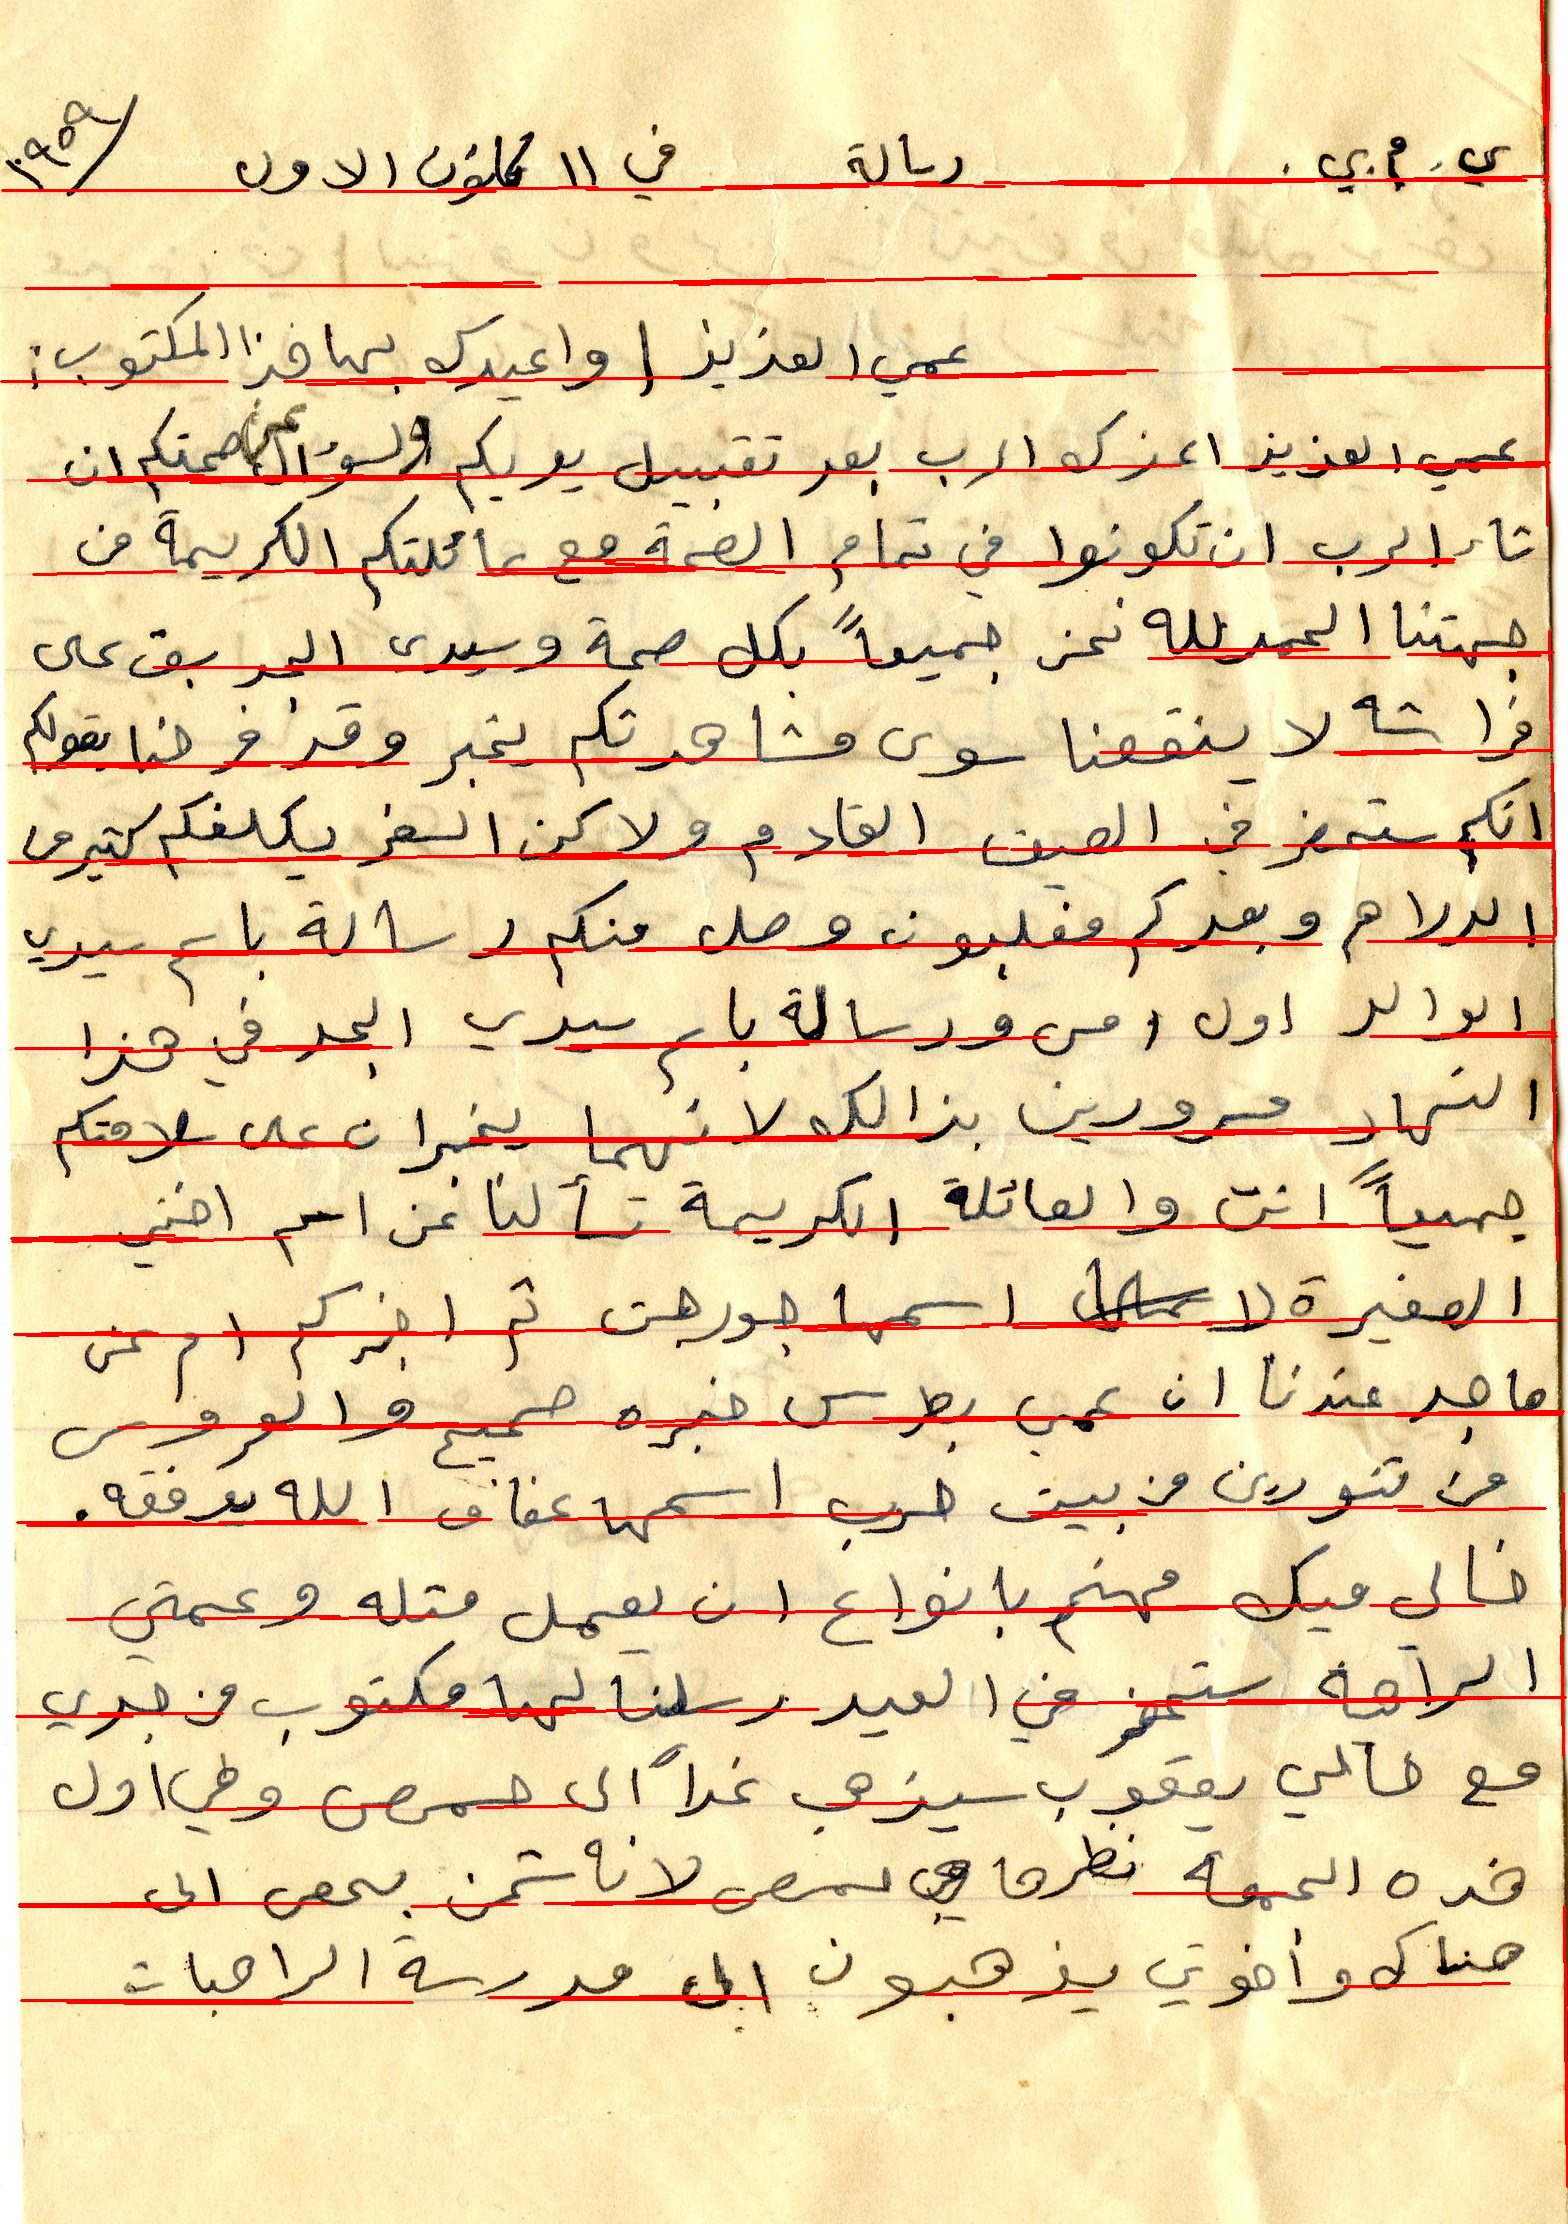 ي. م. ي. رسالة في ١١ كانون الاول ١٩٥٩
عمي العزيز واعيدك بها هذا المكتوب:
عمي العزيز اعزك الرب بعد تقبيل يديكم والسؤال عن صحتكم ان
شاء الرب ان تكونوا في تمام الصحة مع عائلتكم الكريمة من
جهتنا الحمدلله نحن جميعاً بكل صحة وسيدي الجد بقى على
فراشه لا ينقصنا سوى مشاهدتكم بخير وقد فرحنا بقولكم
انكم ستحضر في الصيف القادم ولاكن السفر يكلفكم كتير من
الدراهم وبعدكم مغلبون وصل منكم رسالة باسم سيدي
الوالد اول امس ورسالة باسم سيدي الجد في هذا
النهار مسرورين بذالك لانهما يخبران على سلامتكم
جميعاً انت والعائلة الكريمة تسألنا عن اسم اختي
الصغيرة اسمها جورجت ثم اخبركم ام عن
ماجد عندنا ان عمي بطرس خبره صحيح والعروس
من تنورين من بيت حرب اسمها عفاف الله يوفقه.
خالي ميك مهتم بانواع ان يعمل متله وعمتي
الراهبة ستحضر في العيد رسلنا لها مكتوب من جدي
مع خالي يعقوب سيذهب غداً الى حمص وهي اول
هذه الجمعة نظرها في حمص لانه شحن بحص الى
هناك وأخوتي يذهبون الى مدرسة الراهبات